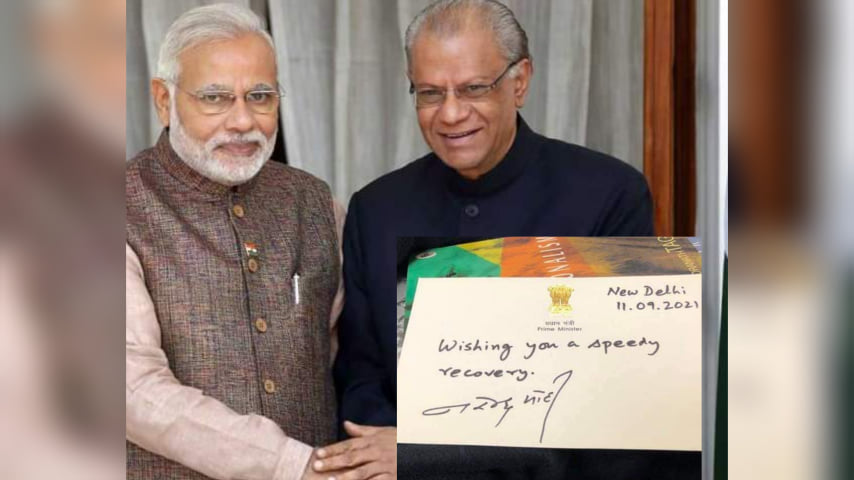 NALISM
New Delhi
11.09.2021
प्रधान मंत्री
Prime Minister
Wishing you a speedy
recovery.